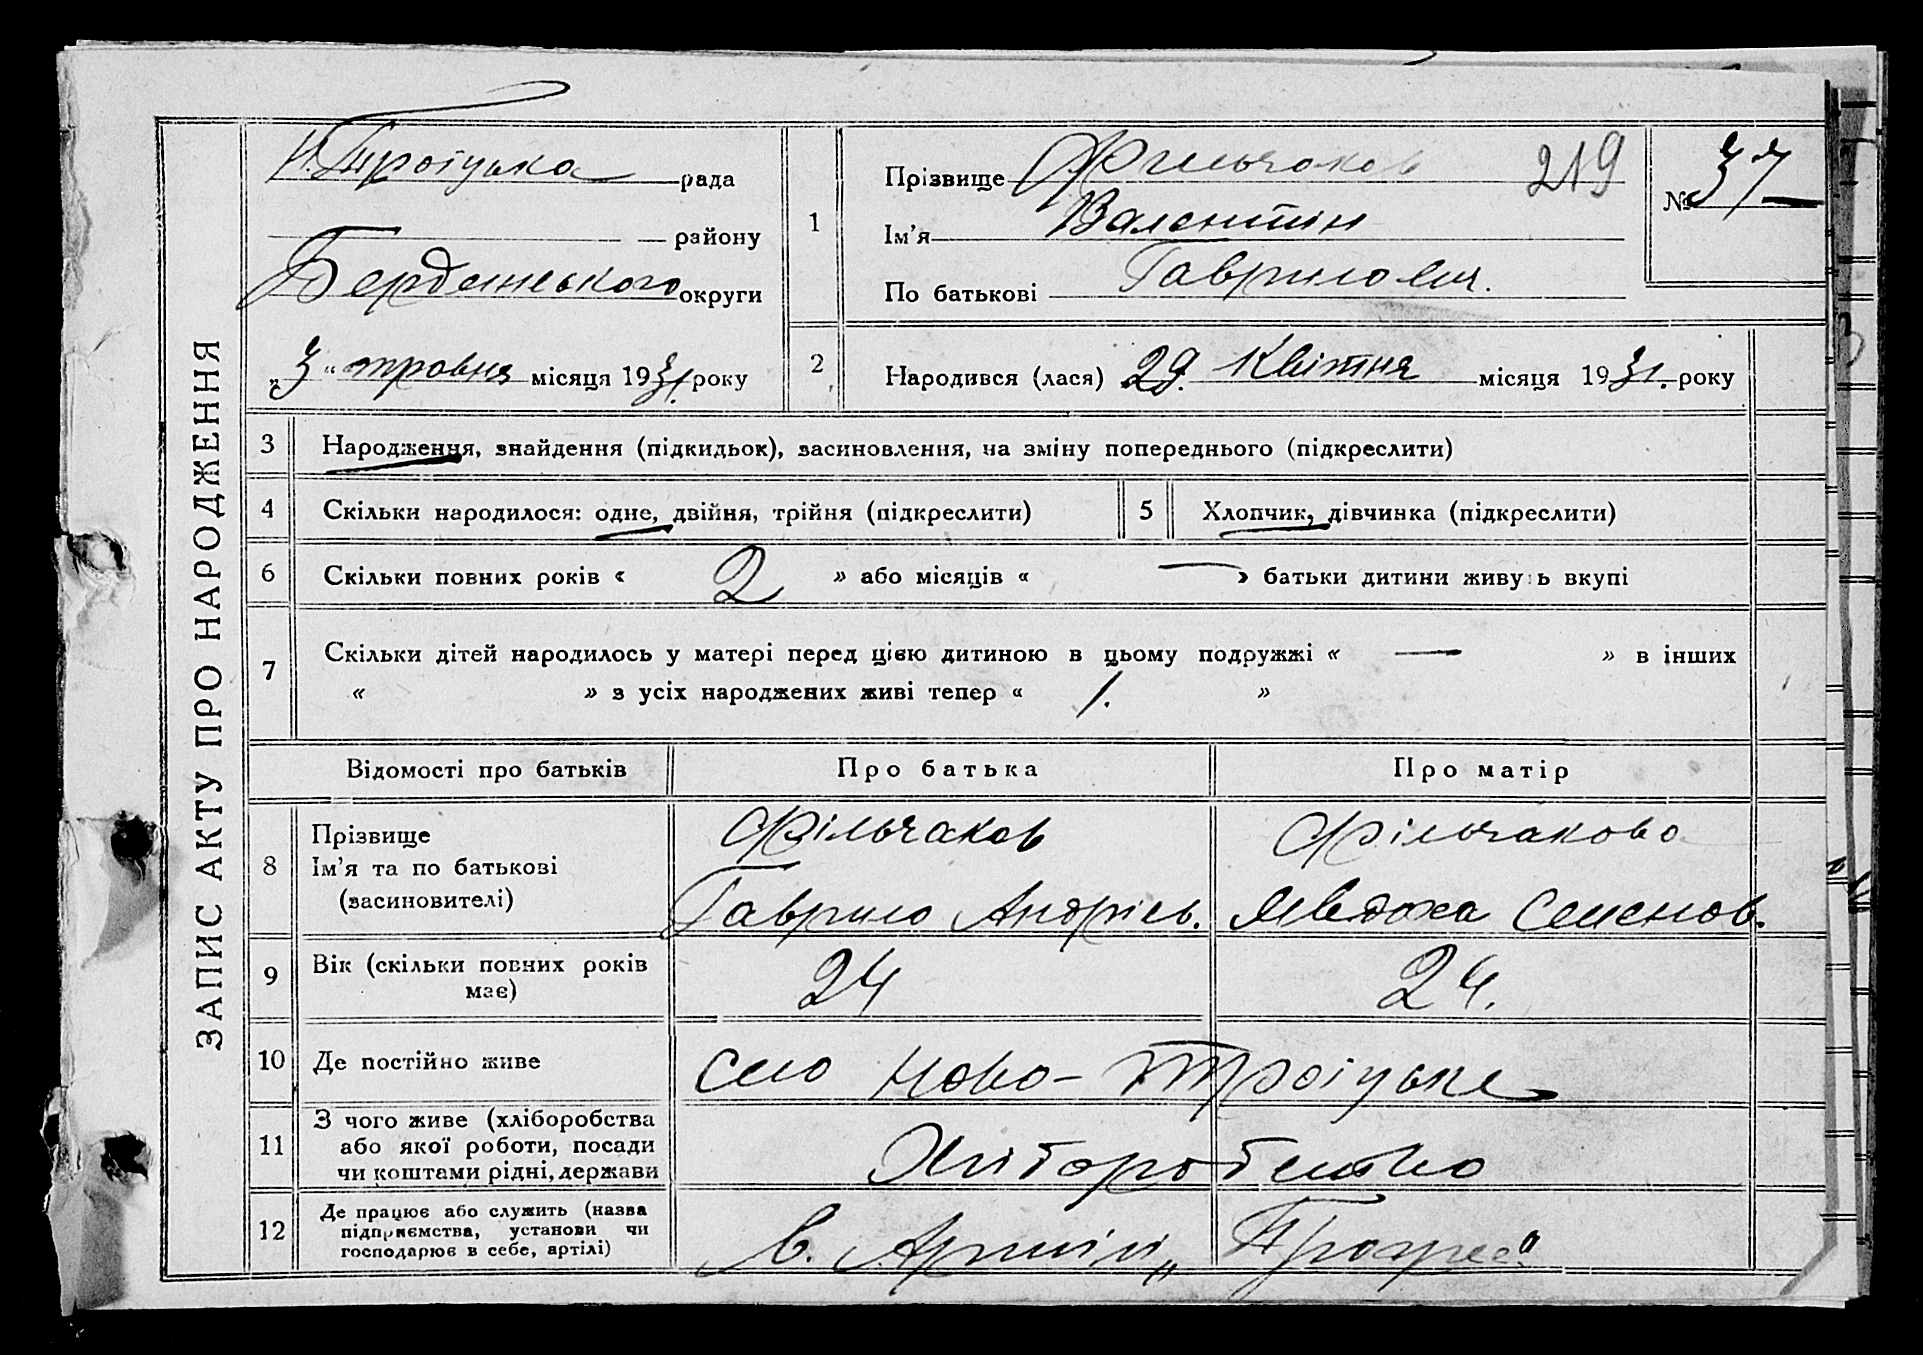 ЗАПИС АКТУ ПРО НАРОДЖЕННЯ
Н. Троїцька рада
району
Бердянського округи
„3“ травня місяця 1931. року
1
Прізвище Фильчаков 219
Ім’я Валентін
По батькові Гаврилович.
№ 37
2
Народився (лася) 29. Квітня місяця 1931. року
3 Народження, знайдення (підкидьок), засиновлення, на зміну попереднього (підкреслити)
4 Скільки народилося: одне, двійня, трійня (підкреслити) 5 Хлопчик, дівчинка (підкреслити)
6 Скільки повних років « 2 » або місяців « — » батьки дитини живуть вкупі
7 Скільки дітей народилось у матері перед цією дитиною в цьому подружжі « — » в інших
« » з усіх народжених живі тепер « 1. »
Відомості про батьків Про батька Про матір
8 Прізвище Фільчаков Фільчакова
Ім’я та по батькові
(засиновителі) Гаврило Андрієв. Явдоха Семенов.
9 Вік (скільки повних років має) 24 24.
10 Де постійно живе село Ново-Троїцьке
11 З чого живе (хліборобства
або якої роботи, посади
чи коштами рідні, держави Хліборобство
12 Де працює або служить (назва
підприємства, установи чи
господарює в себе, артілі) в. Артілі „Прогрес“